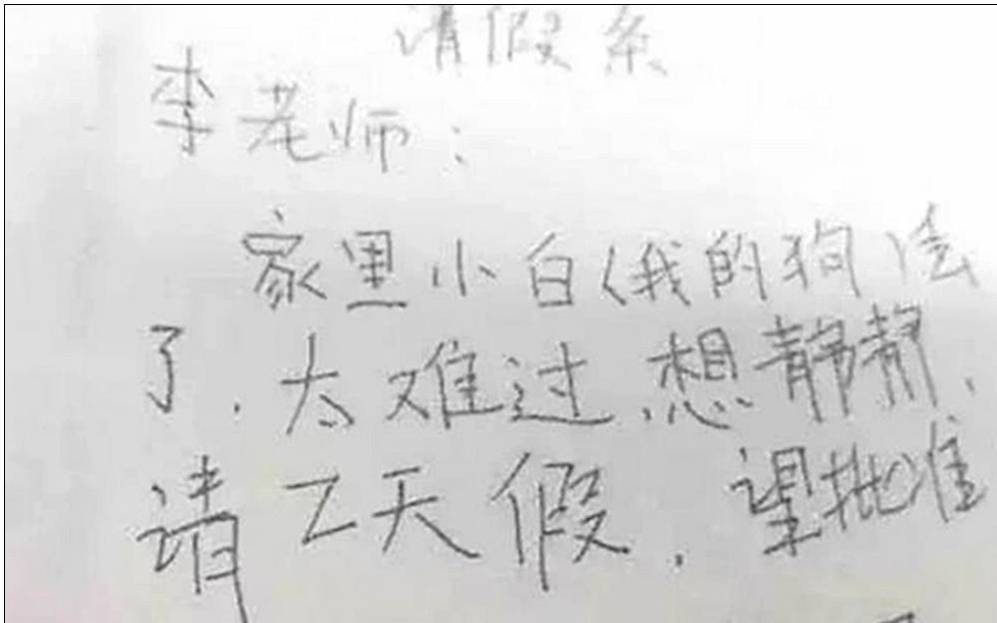 请假条
李老师：
家里小白(我的狗)去
了.太难过,想静静,
请2天假.望批准